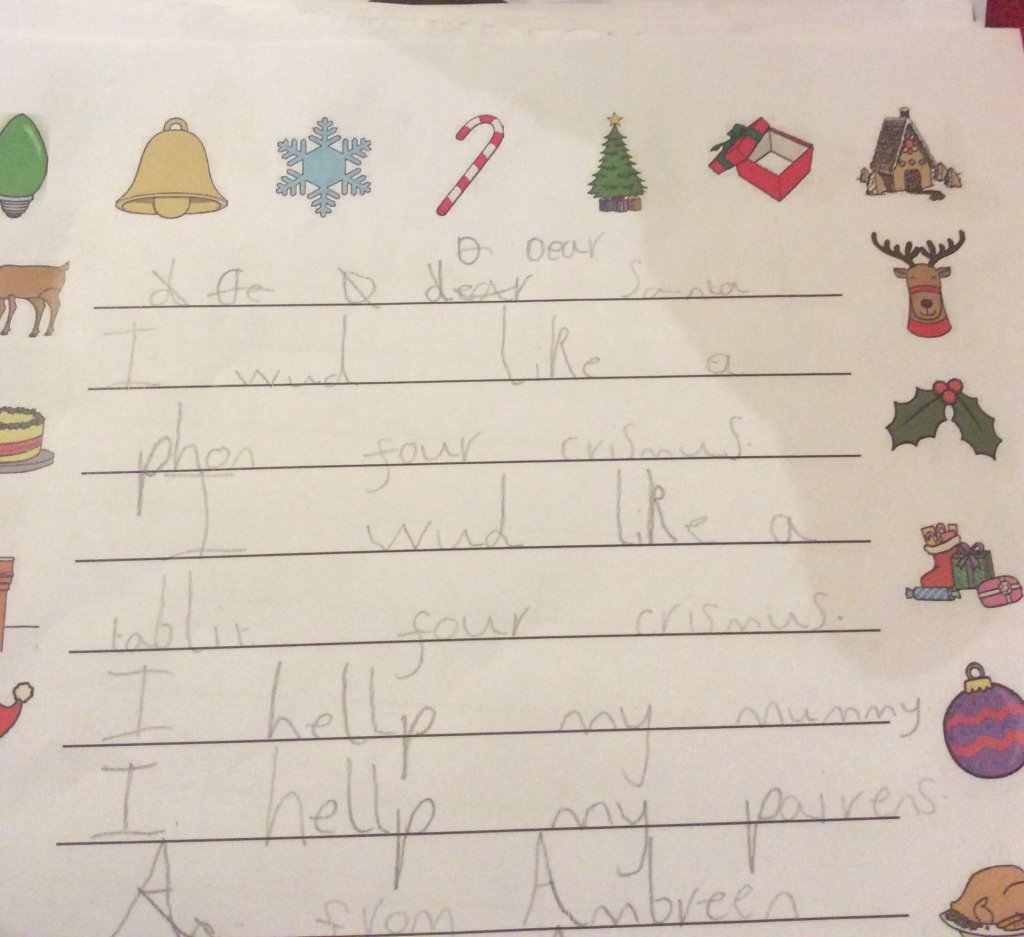 Dear
dear Santa
I wud like a
phon four crismus.
I wud like a
tablit four crismus.
I hellp my mummy.
I hellp my pairens.
from Ambreen